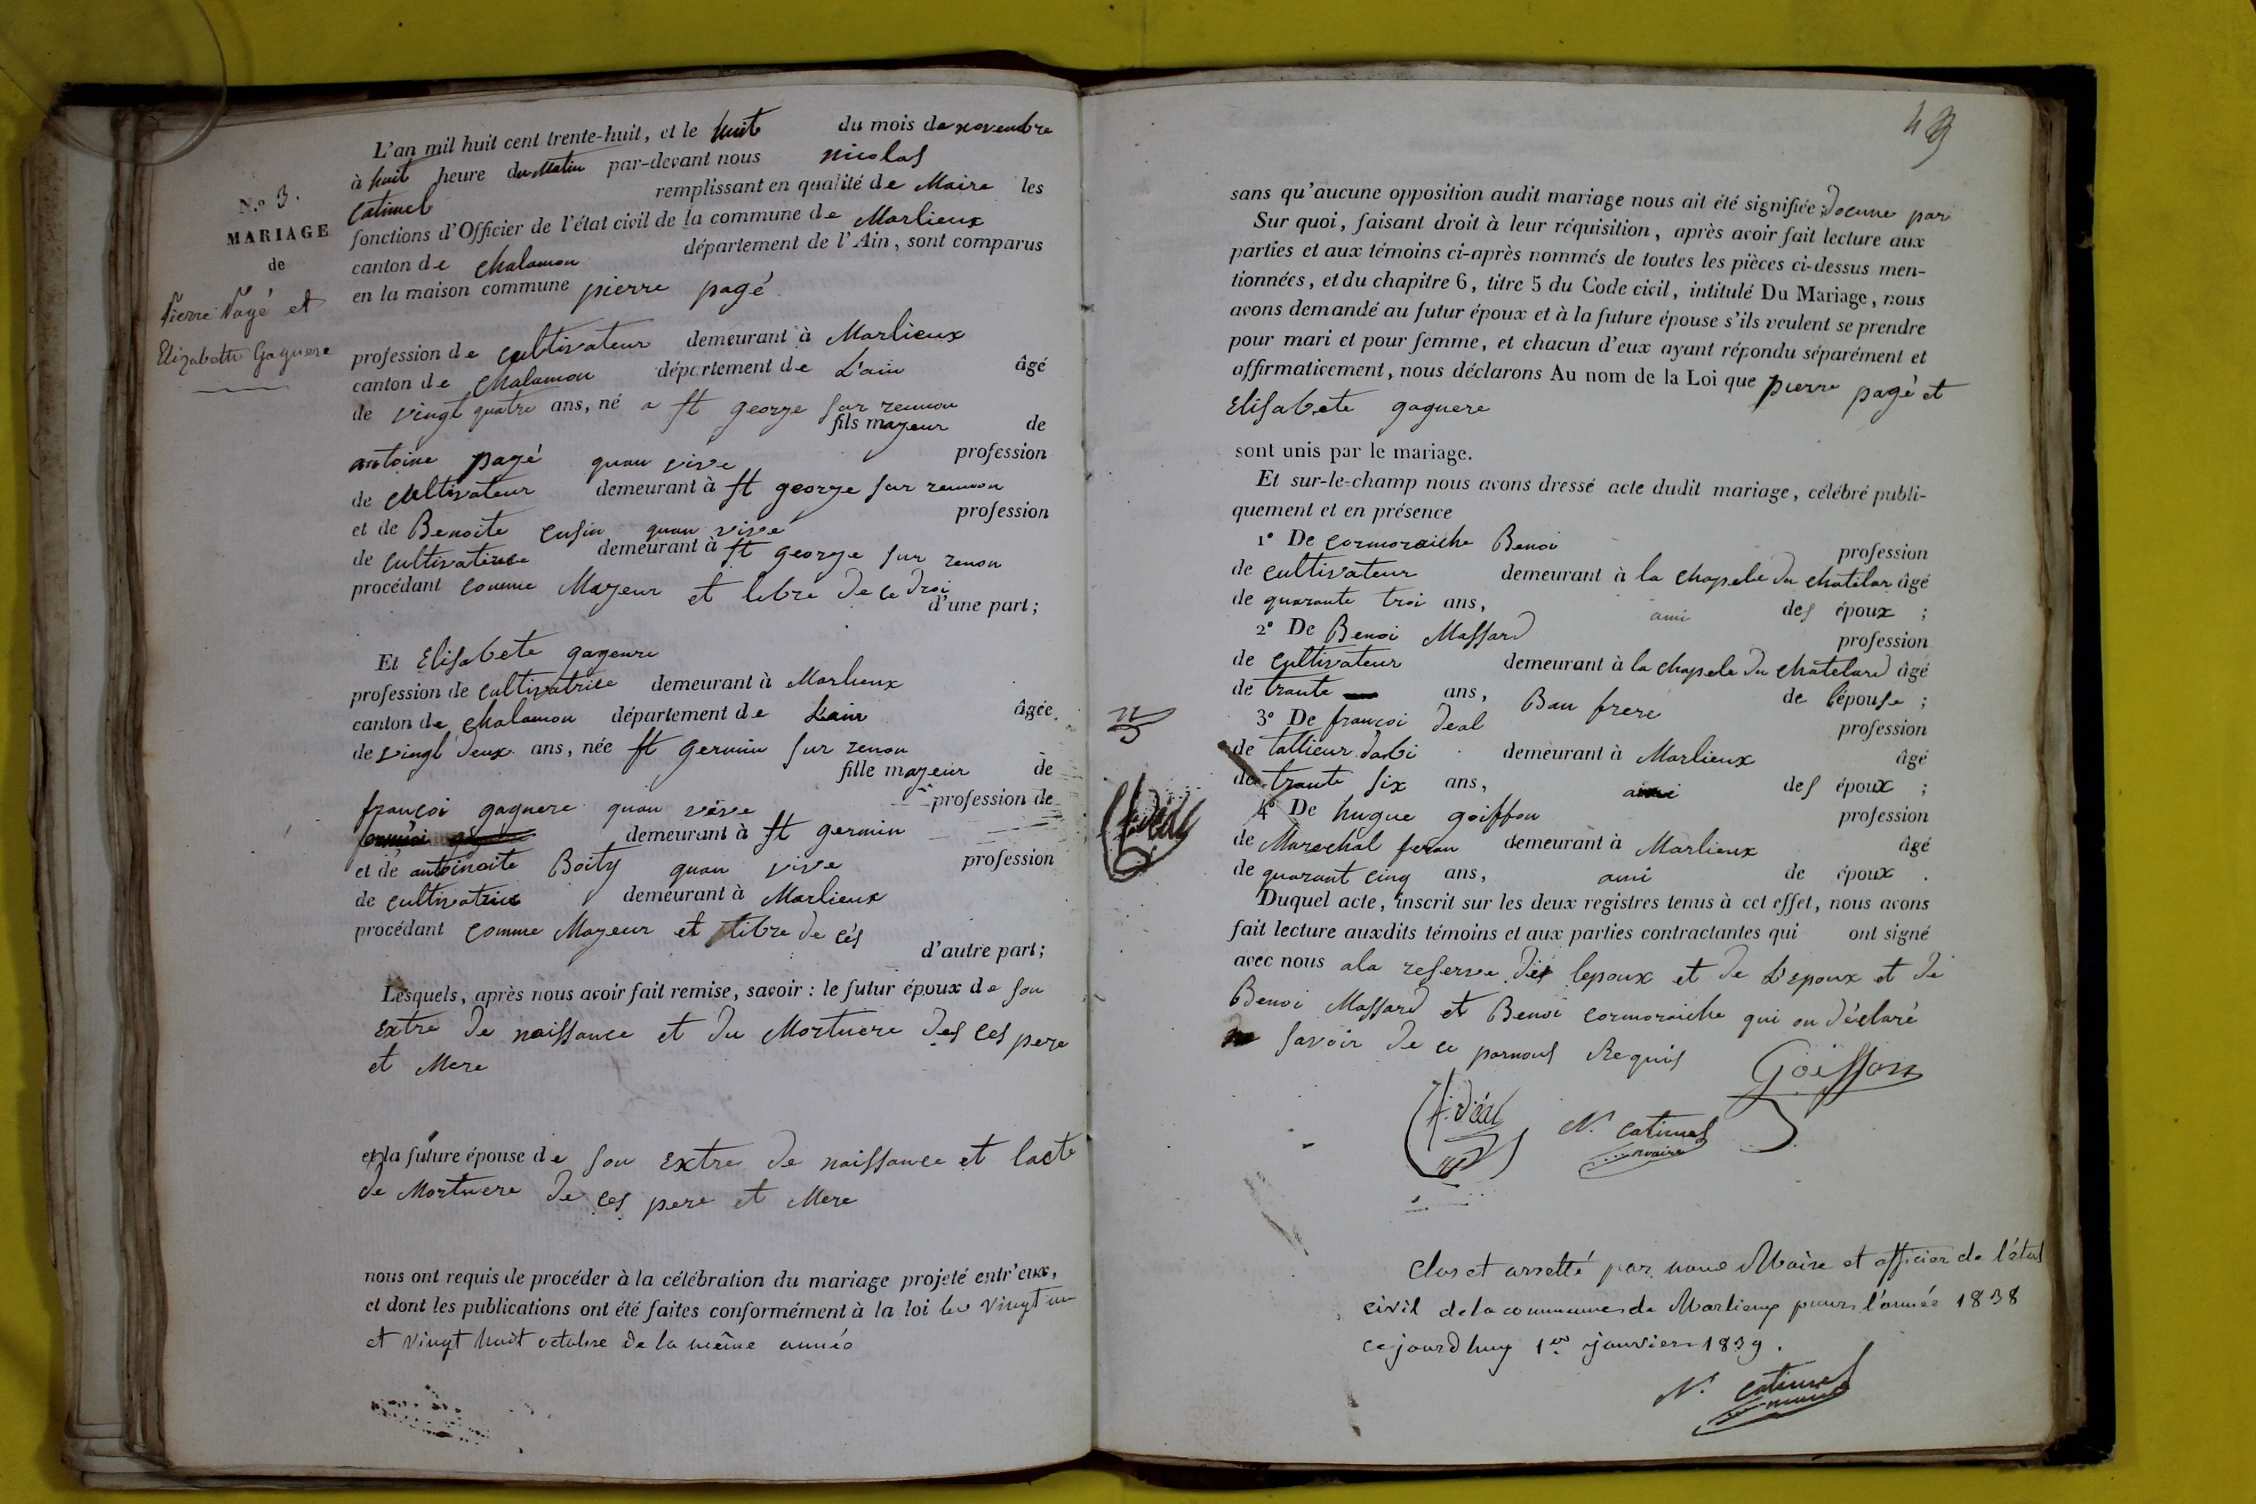 N.º 3.
MARIAGE
de
Pierre Pagé et
Elizabeth Gaguere
L'an mil huit cent trente-huit, et le huit du mois de novembre
à huit heure du Matin par-devant nous nicolas
Catimel remplissant en qualité de Maire les
fonctions d'Officier de l'état civil de la commune de Marlieux
canton de Chalamon département de l'Ain, sont comparus
en la maison commune pierre pagé
profession de cultivateur demeurant à Marlieux
canton de Chalamon département de L'ain âgé
de vingt quatre ans, né a st george sur rennon
fils mayeur de
antoine pagé quan vivé profession
de cultivateur demeurant à st george sur rennon
et de Benoite cusin quan vivé profession
de cultivatrice demeurant à st george sur renon
procédant comme Mayeur et libre de ce droi
d'une part;
Et Elisabete gagenre
profession de cultivatrice demeurant à Marlieux
canton de Chalamon département de L'ain âgée
de vingt deux ans, née st germin sur renon
fille mayeur de
françoi gaguere quan vive profession de
demeurant à st germin
et de antoinaite Boity quan vive profession
de cultivatrice demeurant à Marlieux
procédant comme Mayeur et libre de cés
d'autre part;
Lesquels, après nous avoir fait remise, savoir : le futur époux de son
Extre de naissance et du Mortuere des ces pere
et Mere
et la future épouse de son Extre de naissance et lacte
de Mortuere de ces pere et Mere
nous ont requis de procéder à la célébration du mariage projeté entr'eux,
et dont les publications ont été faites conformément à la loi les vingt un
et vingt huit octobre de la même année
sans qu'aucune opposition audit mariage nous ait été signifiée; docune par
Sur quoi, faisant droit à leur réquisition, après avoir fait lecture aux
parties et aux témoins ci-après nommés de toutes les pièces ci-dessus men-
tionnées, et du chapitre 6, titre 5 du Code civil, intitulé Du Mariage, nous
avons demandé au futur époux et à la future épouse s'ils veulent se prendre
pour mari et pour femme, et chacun d'eux ayant répondu séparément et
affirmativement, nous déclarons Au nom de la Loi que pierre pagé et
Elisabete gaguere
sont unis par le mariage.
Et sur-le-champ nous avons dressé acte dudit mariage, célébré publi-
quement et en présence
1º De cormoraiche Benoi profession
de cultivateur demeurant à la chapele du chatelar âgé
de quarante troi ans, ami des époux ;
2º De Benoi Massard profession
de cultivateur demeurant à la chapele du chatelard âgé
de trante ans, Bau frere de lépouse ;
3º De françoi deal profession
de tallieur dabi demeurant à Marlieux âgé
de trante six ans, ami des époux ;
4º De hugue goiffon profession
de Marechal feran demeurant à Marlieux âgé
de quarant cinq ans, ami de époux .
Duquel acte, inscrit sur les deux registres tenus à cet effet, nous avons
fait lecture auxdits témoins et aux parties contractantes qui ont signé
avec nous ala reserve des lepoux et de L'epoux et de
Benoi Massard et Benoi cormoraiche qui on déclaré
ne savoir de ce parnous Requis
Goiffon
f. déal
N. catimel
maire
Clos et arretté par nous Maire et officier de l'état
civil de la commune de Marlieux pour l'année 1838
cejourdhuy 1er janvier 1839.
N. catimel
maire